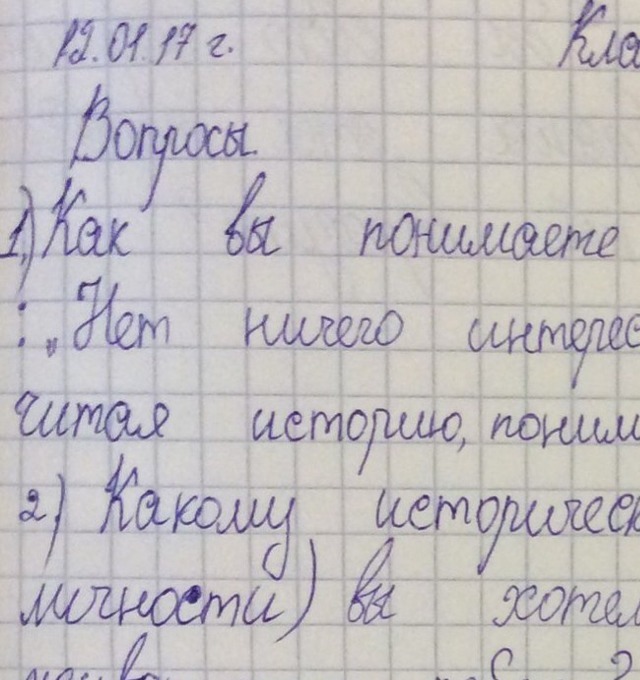 12.01.17 г. Кла
Вопросы.
1) Как вы понимаете
: „Нет ничего интерес
читая историю, поним
2) Какому историческ
личности) вы хотел